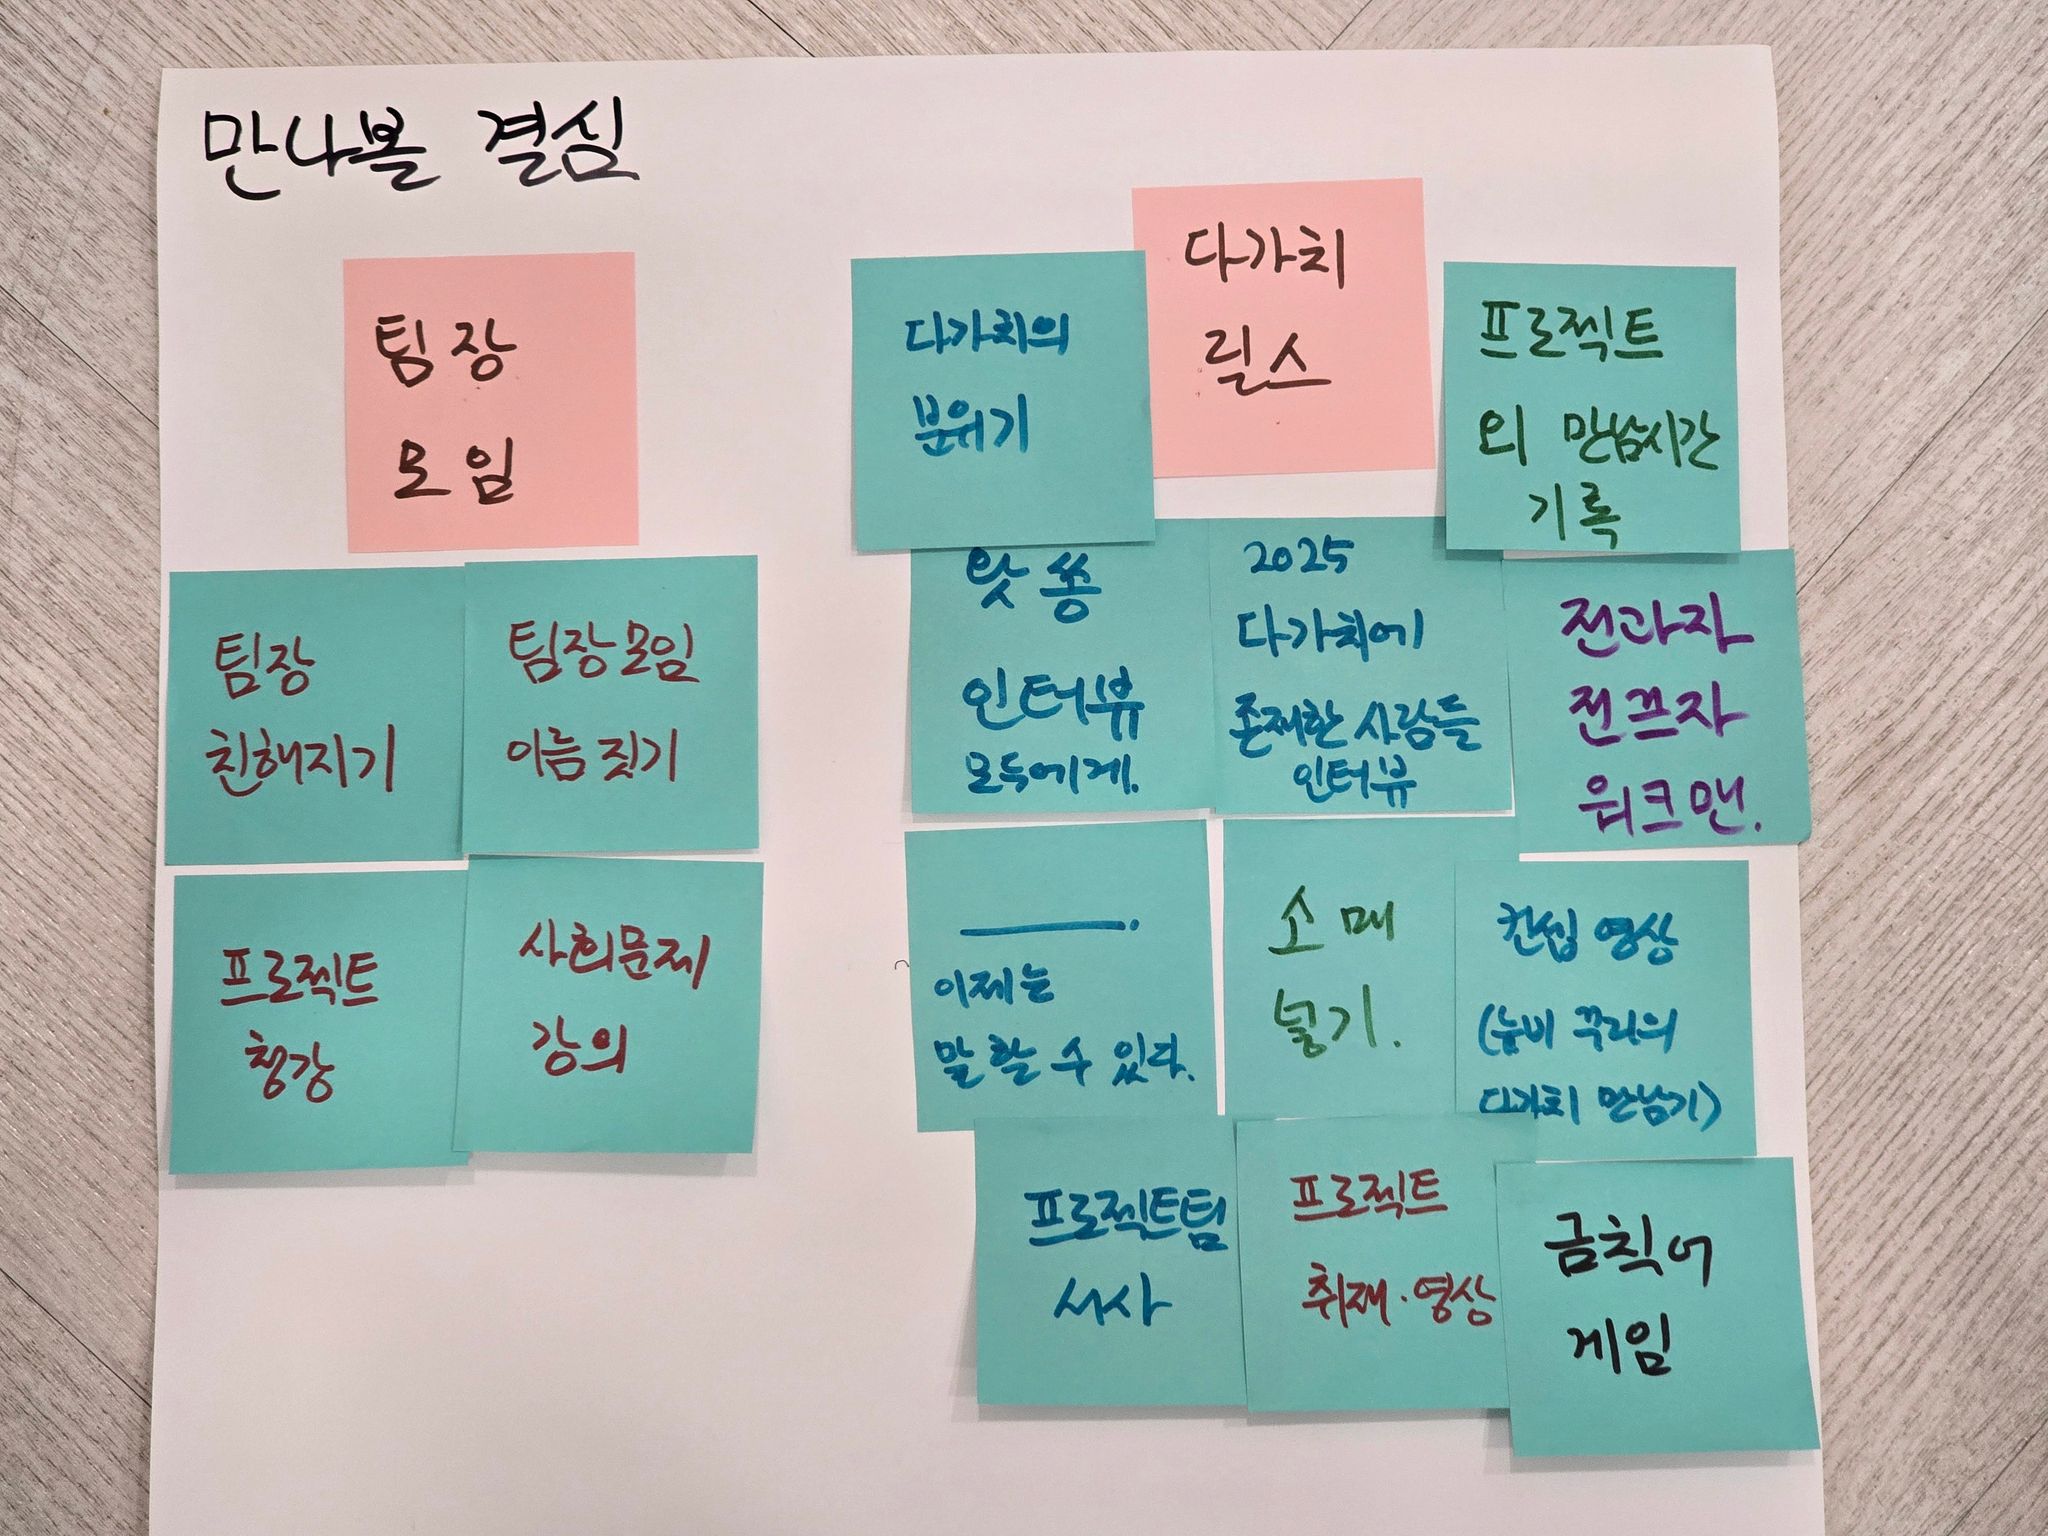 만나볼 결심
팀장
모임
팀장
친해지기
팀장모임
이름 짓기
프로젝트
청강
사회문제
강의
다가치
릴스
다가치의
분위기
프로젝트
외 만남시간
기록
왓쏭
인터뷰
모두에게.
2025
다가치에
존재한 사람들
인터뷰
전과자
전끄자
워크맨.
______.
이제는
말할 수 있다.
소매
넣기.
컨셉 영상
(뉴비 꾸리의
다가치 만남기)
프로젝트팀
서사
프로젝트
취재·영상
금칙어
게임